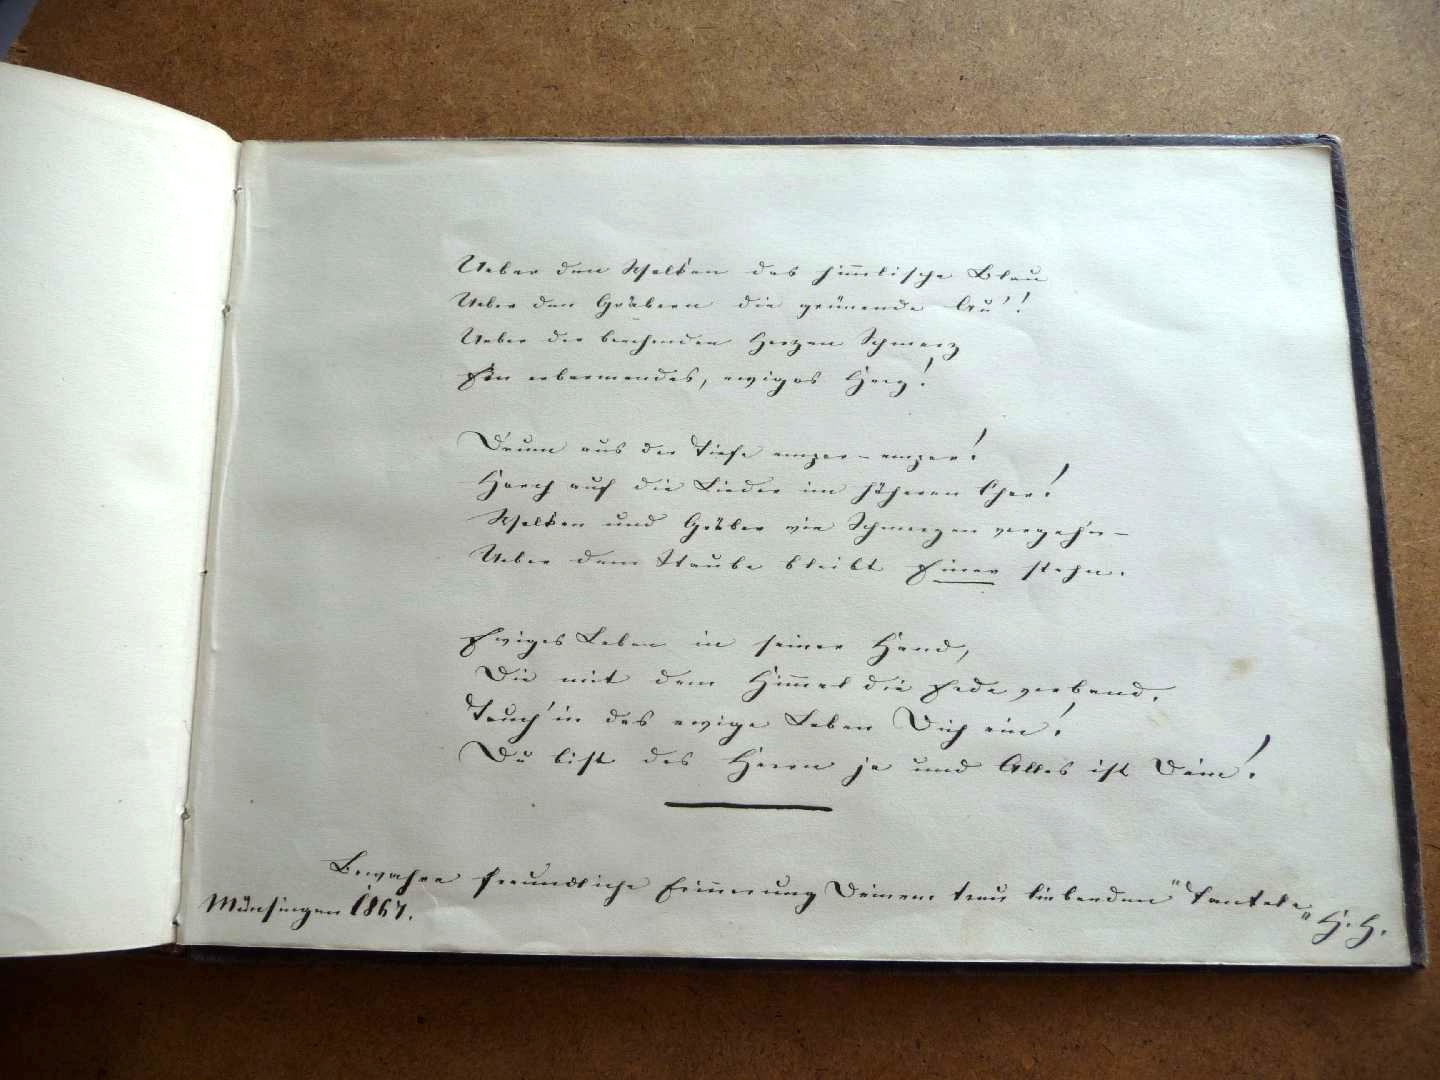 Ueber den Wolken das himmlische Blau
Ueber den Gräbern die grünende Au'!
Ueber der brechenden Herzen Schmerz
Ein erbarmendes, ewiges Herz!
Drum aus der Tiefe empor-empor!
Horch auf die Lieder im höheren Chor!
Wolken und Gräber wie Schmerzen vergeh'n-
Ueber dem Staube bleibt Einer stehn.
Ewiges Leben in seiner Hand,
Die mit dem Himmel die Erde verband.
Tauch' in das ewige Leben Dich ein!
Du bist des Herrn ja und Alles ist Dein!
Bewahre freundliche Erinnerung Deinem treu liebenden "Tantele" H. H.
Münsingen 1867.